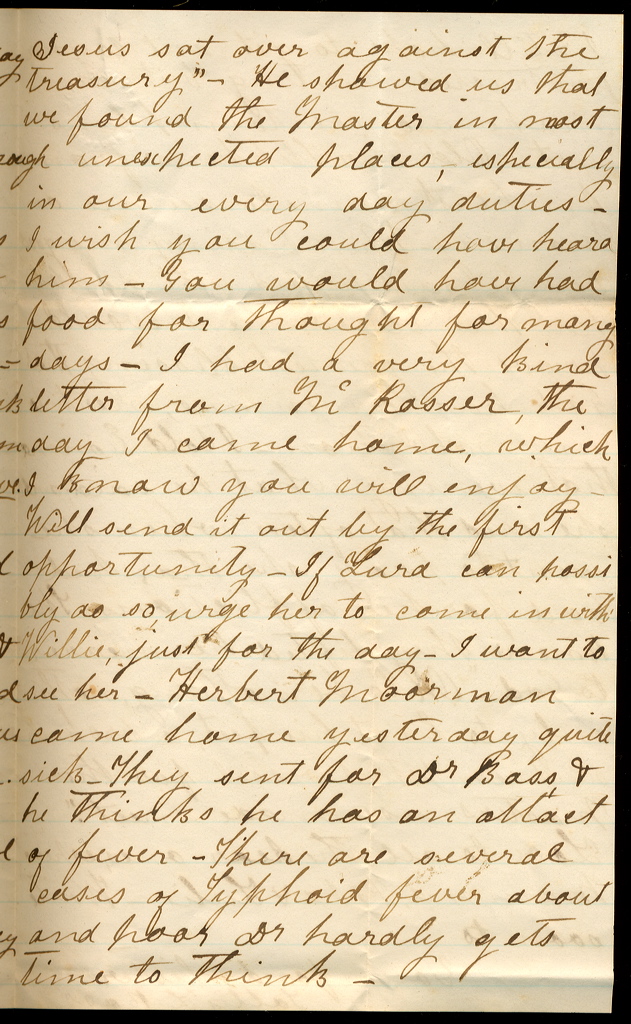 Jesus sat over against the
treasury" - He showed us that
we found the Master in most
unexpected places, especially
in our every day duties -
I wish you could have heard
him - You would have had
food for thought for many
days - I had a very kind
letter from Mr Rosser, the
day I came home, which
I know you will enjoy -
Will send it out by the first
opportunity - If Lura can possi
bly do so, urge her to come in with
Willie, just for the day - I want to
see her - Herbert Moorman
came home yesterday quite
sick - They sent for Dr Bass, &
he thinks he has an attact
of fever - There are several
cases of Typhoid fever about
and poor Dr hardly gets
time to think -